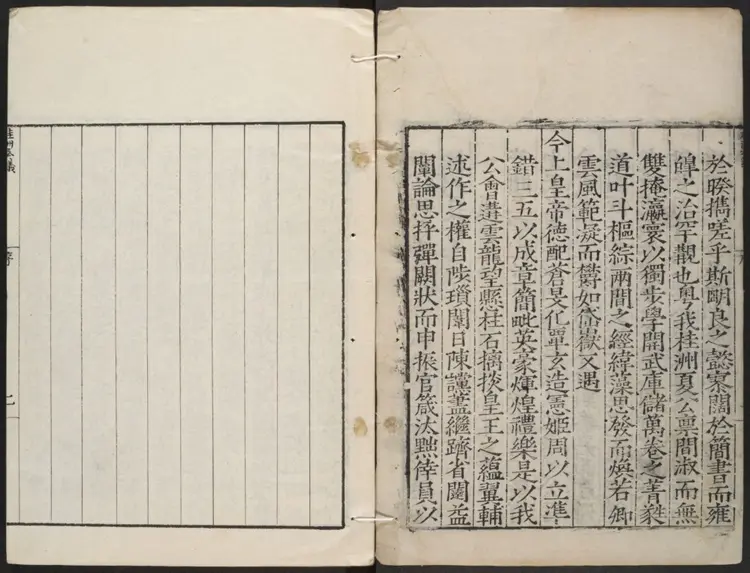 於暌攜嗟乎斯眀良之懿寀闊於簡書而雍
皡之治罕覯也粤我桂洲夏公禀間淑而無
雙掩瀛寰以獨步學開武庫儲萬卷之菁蕤
道叶斗樞綜兩間之經緯藻思發而煥若卿
雲風範凝而欝如嶽又遇
今上皇帝德配蒼旻化單玄造憲姬周以立準
錯三五以成章簡毗英豪煇煌禮樂是以我
公會遘雲龍望懸柱石摛掞皇王之蘊翼輔
述作之權自陟瑣闈日陳讜藎繼躋省闥益
闡論思抨彈闕狀而申振官箴汰黜倖員以
桂洲奏議
序